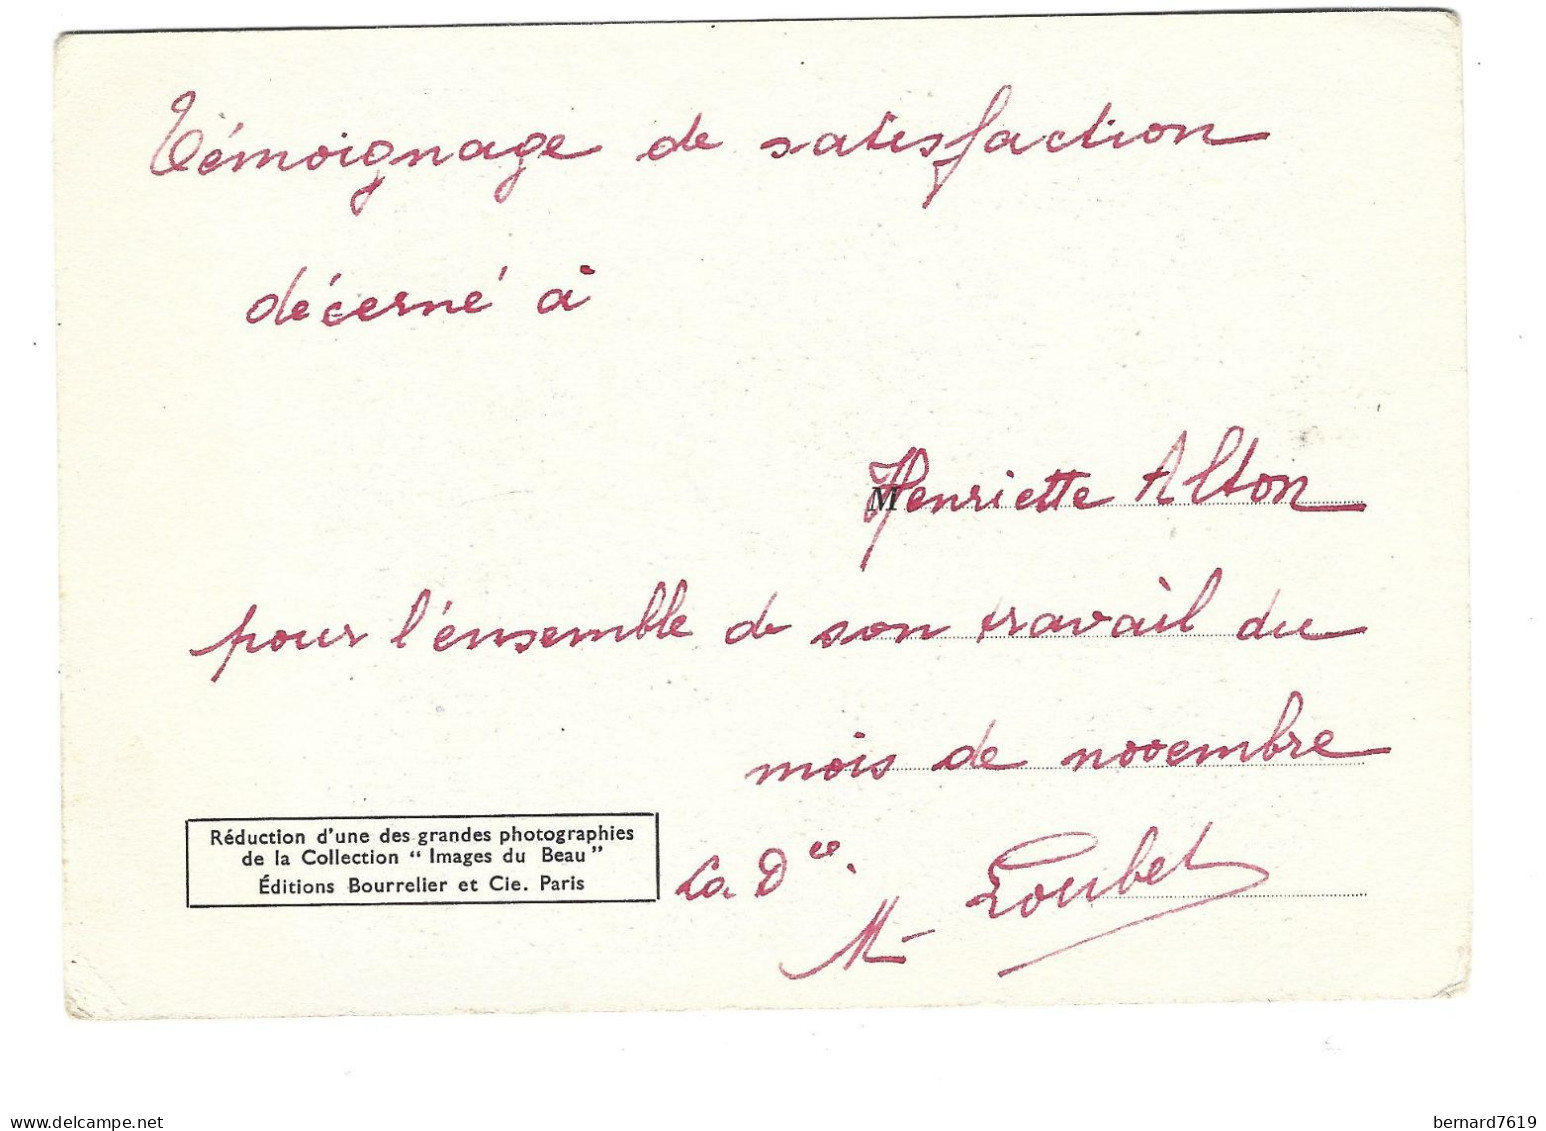 Témoignage de satisfaction
décerné à
M Henriette Alton
pour l'énsemble de son travail du
mois de novembre
Réduction d'une des grandes photographies
de la Collection “ Images du Beau ”
Éditions Bourrelier et Cie. Paris
La D ce.
M - Loubet
www.delcampe.net
bernard7619